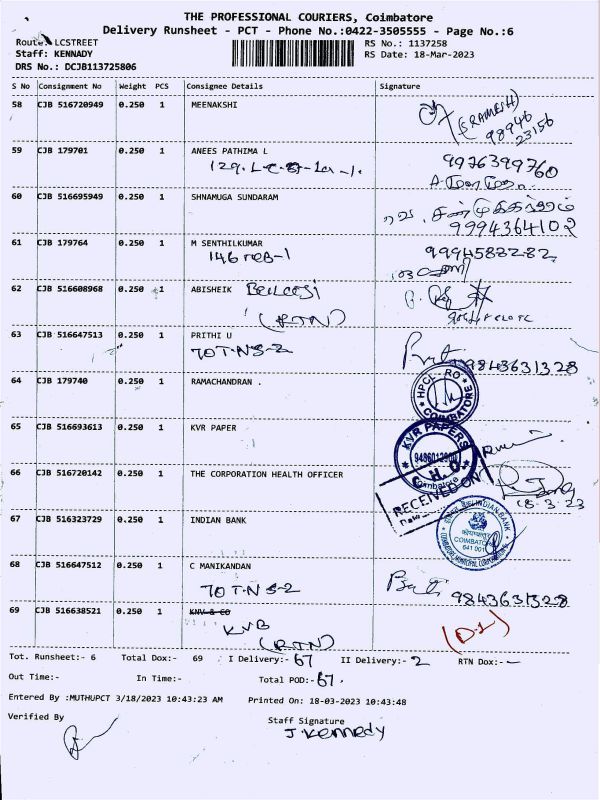 THE PROFESSIONAL COURIERS, Coimbatore
Delivery Runsheet - PCT - Phone No.:0422-3505555 - Page No.:6
Route: LCSTREET
Staff: KENNADY
DRS No.: DCJB113725806
RS No.: 1137258
RS Date: 18-Mar-2023
S No Consignment No Weight PCS Consignee Details Signature
58 CJB 516720949 0.250 1 MEENAKSHI
(S RAMESH)
98946
23156
59 CJB 179701 0.250 1 ANEES PATHIMA L 9976399760
60 CJB 516695949 0.250 1 SHNAMUGA SUNDARAM
9994364102
61 CJB 179764 0.250 1 M SENTHILKUMAR 9994588282
62 CJB 516608968 0.250 1 ABISHEIK
(RTN)
63 CJB 516647513 0.250 1 PRITHI U
TOT.NS-2 9843631328
64 CJB 179740 0.250 1 RAMACHANDRAN .
HPCL RO
COIMBATORE
65 CJB 516693613 0.250 1 KVR PAPER
KVR PAPERS
Coimbatore
66 CJB 516720142 0.250 1 THE CORPORATION HEALTH OFFICER
C. H. O.
RECEIVED ON
18-3-23
67 CJB 516323729 0.250 1 INDIAN BANK
INDIAN BANK
COIMBATORE
641 001
68 CJB 516647512 0.250 1 C MANIKANDAN
TOT.NS-2 9843631328
69 CJB 516638521 0.250 1 KNV & CO
KVB
(RTN) (D-1)
Tot. Runsheet:- 6 Total Dox:- 69 I Delivery:- 67 II Delivery:- 2 RTN Dox:- -
Out Time:- In Time:- Total POD:- 67.
Entered By :MUTHUPCT 3/18/2023 10:43:23 AM Printed On: 18-03-2023 10:43:48
Verified By Staff Signature
J Kennedy